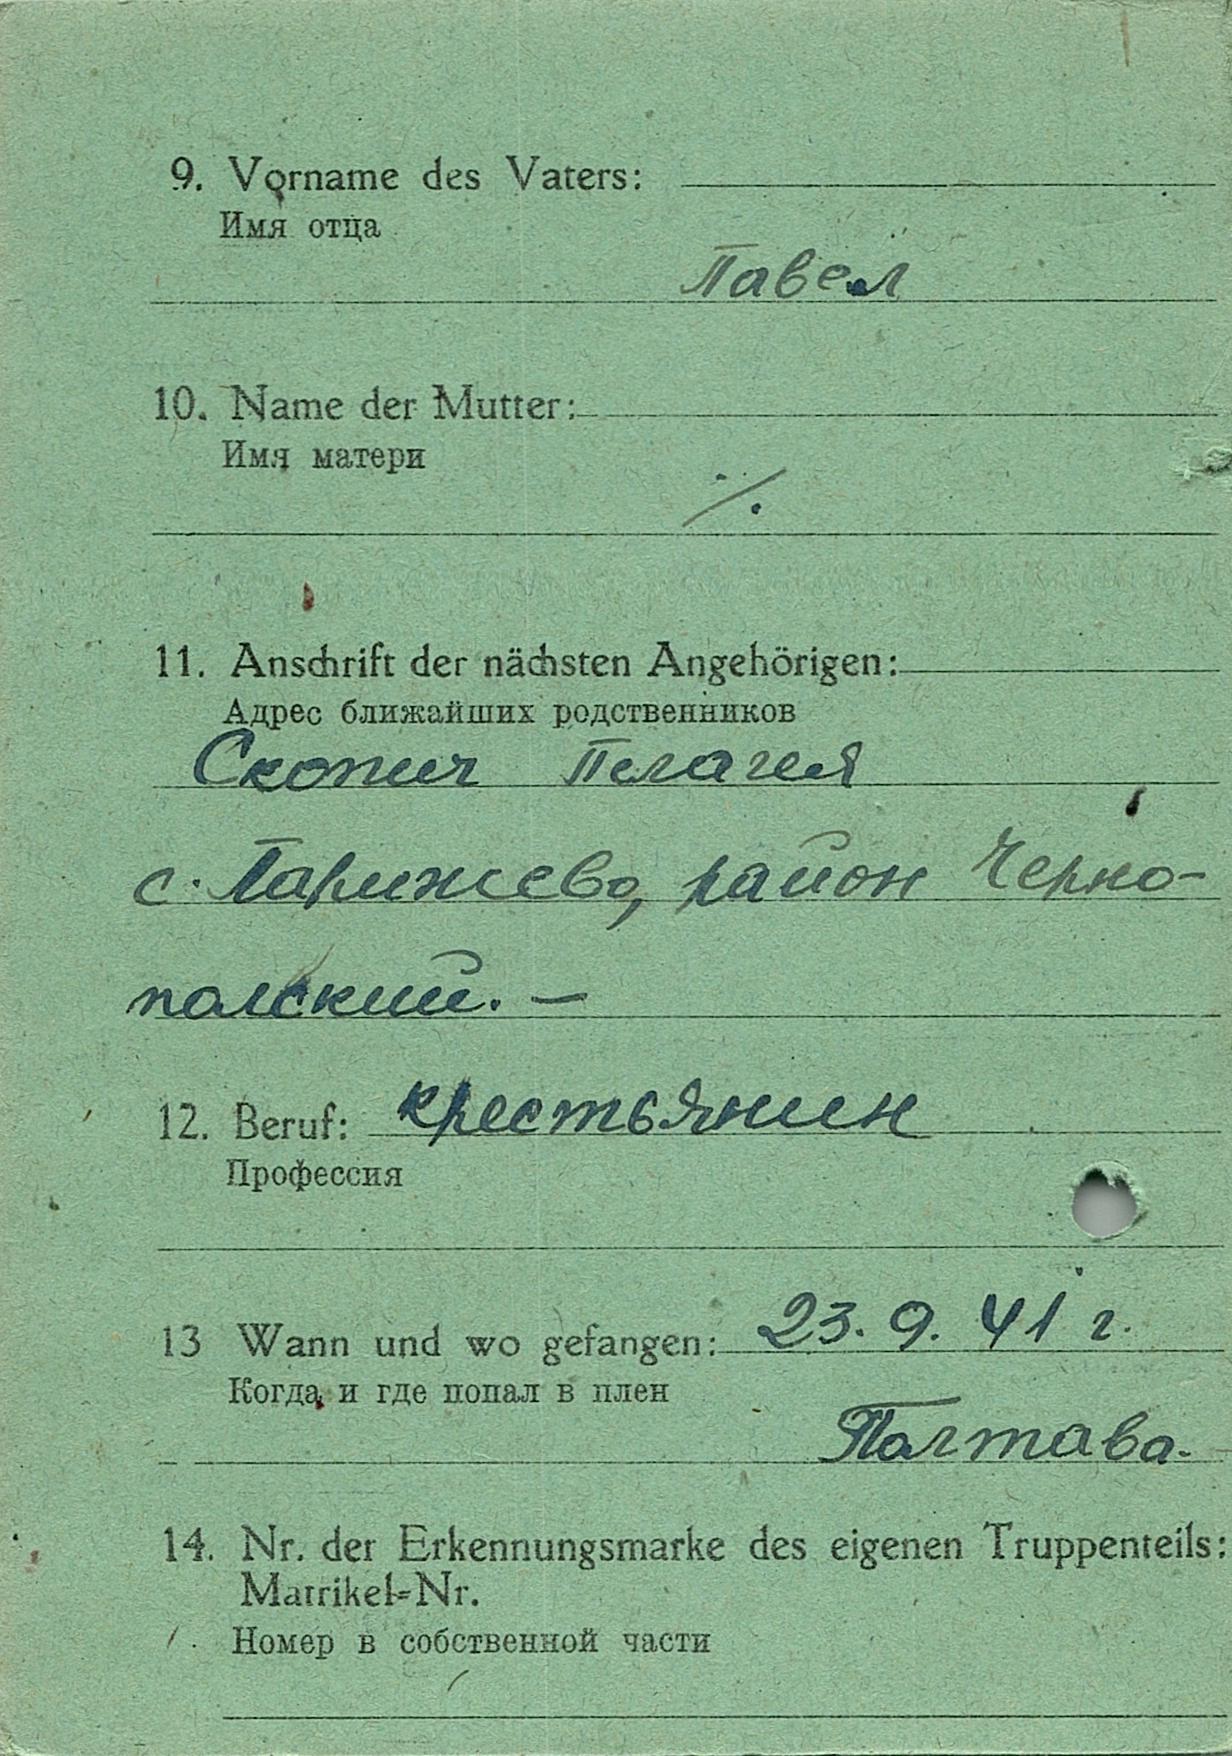 9. Vorname des Vaters:
Имя отца
Павел
10. Name der Mutter:
Имя матери
·/.
11. Anschrift der nächsten Angehörigen:
Адрес ближайших родственников
Скопич Пелагея
с. Парижево, район Черно-
полский. —
12. Beruf: крестьянин
Профессия
13 Wann und wo gefangen: 23. 9. 41 г.
Когда и где попал в плен
Полтава.
14. Nr. der Erkennungsmarke des eigenen Truppenteils:
Matrikel-Nr.
Номер в собственной части